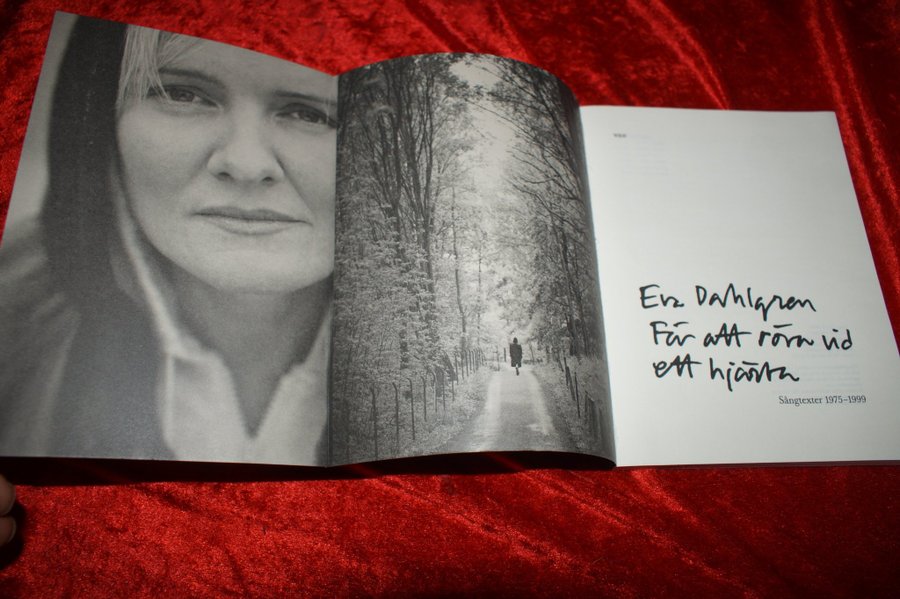 Eva Dahlgren
För att röra vid
ett hjärta
Sångtexter 1975–1999